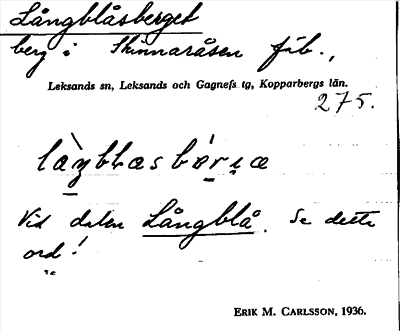 Långblåsberget
berg i Skinnaråsen fäb.,
Leksands sn, Leksands och Gagnefs tg, Kopparbergs län.
275.
Vid dalen Långblå. Se detta
ord!
ERIK M. CARLSSON, 1936.